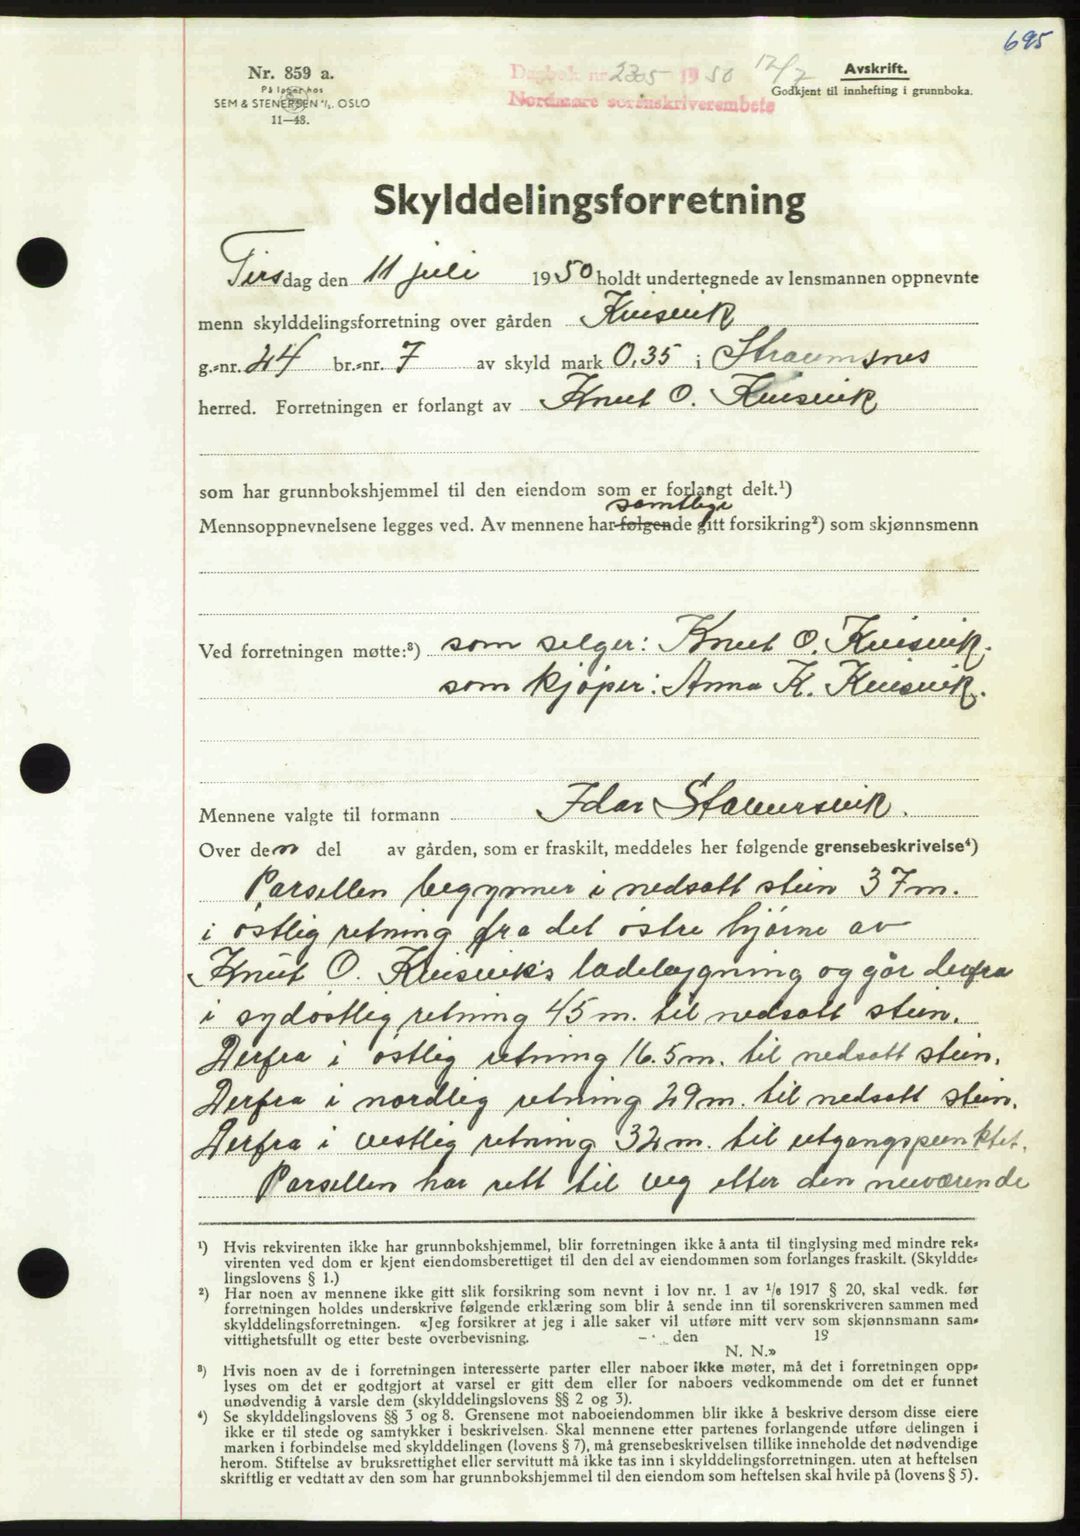 695
Nr. 859 a.
På lager hos
SEM & STENERSEN A/S. OSLO
11—48.
Dagbok nr 2305 1950 12/7
Nordmøre sorenskriverembete
Avskrift.
Godkjent til innhefting i grunnboka.
Skylddelingsforretning
Tirsdag den 11 juli 1950 holdt undertegnede av lensmannen oppnevnte
menn skylddelingsforretning over gården Kvisvik
g.-nr. 24 br.-nr. 7 av skyld mark 0,35 i Straumsnes
herred. Forretningen er forlangt av Knut O. Kvisvik
som har grunnbokshjemmel til den eiendom som er forlangt delt.¹)
samtlige
Mennsoppnevnelsene legges ved. Av mennene har følgende gitt forsikring²) som skjønnsmenn
Ved forretningen møtte:³) som selger: Knut O. Kvisvik.
som kjøper: Anna K. Kvisvik.
Mennene valgte til formann Idar Staversvik.
Over den del av gården, som er fraskilt, meddeles her følgende grensebeskrivelse⁴)
Parsellen begynner i nedsatt stein 37 m.
i østlig retning fra det østre hjørne av
Knut O. Kvisvik's ladebygning og går derfra
i sydøstlig retning 45 m. til nedsatt stein.
Derfra i østlig retning 16.5 m. til nedsatt stein.
Derfra i nordlig retning 29 m. til nedsatt stein.
Derfra i vestlig retning 32 m. til utgangspunktet.
Parsellen har rett til veg etter den nuværende
¹) Hvis rekvirenten ikke har grunnbokshjemmel, blir forretningen ikke å anta til tinglysing med mindre rek-
virenten ved dom er kjent eiendomsberettiget til den del av eiendommen som forlanges fraskilt. (Skyldde-
lingslovens § 1.)
²) Har noen av mennene ikke gitt slik forsikring som nevnt i lov nr. 1 av 1/6 1917 § 20, skal vedk. før
forretningen holdes underskrive følgende erklæring som blir å sende inn til sorenskriveren sammen med
skylddelingsforretningen. «Jeg forsikrer at jeg i alle saker vil utføre mitt verv som skjønnsmann sam-
vittighetsfullt og etter beste overbevisning. — den 19
N. N.»
³) Hvis noen av de i forretningen interesserte parter eller naboer ikke møter, må det i forretningen opp-
lyses om det er godtgjort at varsel er gitt dem eller for naboers vedkommende om det er funnet
unødvendig å varsle dem (skylddelingslovens §§ 2 og 3).
⁴) Se skylddelingslovens §§ 3 og 8. Grensene mot naboeiendommen blir ikke å beskrive dersom disse eiere
ikke er til stede og samtykker i beskrivelsen. Skal mennene etter partenes forlangende utføre delingen i
marken i forbindelse med skylddelingen (lovens § 7), må grensebeskrivelsen tillike inneholde det nødvendige
herom. Stiftelse av bruksrettighet eller servitutt må ikke tas inn i skylddelingsforretningen. uten at heftelsen
skriftlig er vedtatt av den som har grunnbokshjemmel til den eiendom som heftelsen skal hvile på (lovens § 5).